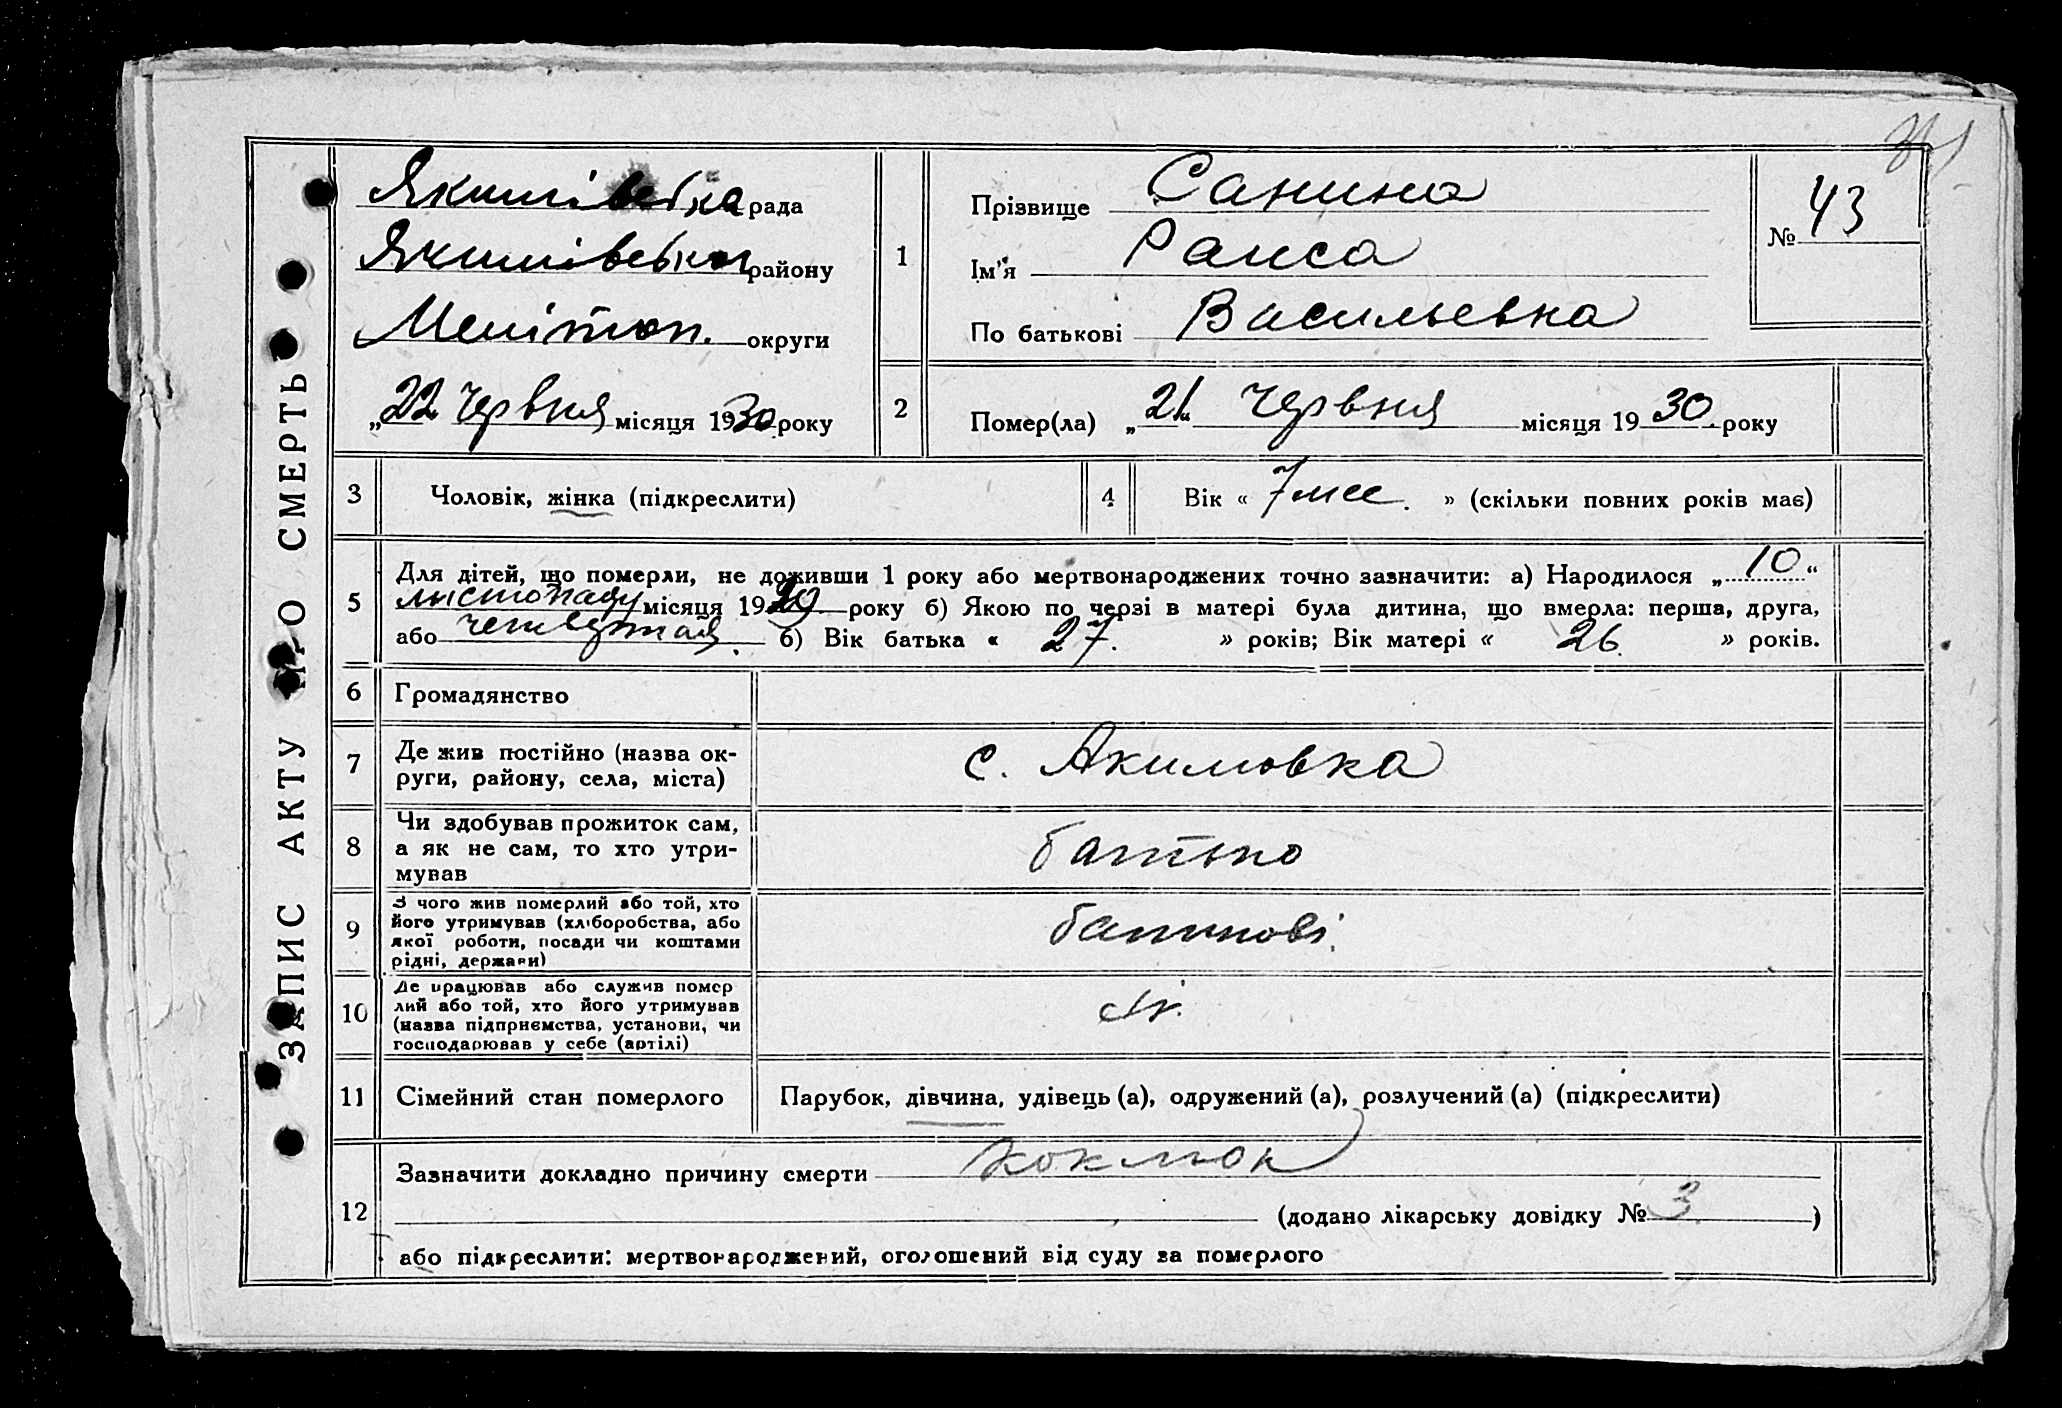 ЗАПИС АКТУ ПРО СМЕРТЬ
Якимівська рада
Якимівського району
Меліто­п. округи
„22 червня місяця 1930 року
1
Прізвище Санина
Ім'я Раиса
По батькові Васильевна
№ 43
2
Помер(ла) „21“ червня місяця 1930 року
3 Чоловік, жінка (підкреслити)
4 Вік « 7 мес. » (скільки повних років має)
5 Для дітей, що померли, не доживши 1 року або мертвонароджених точно зазначити: а) Народилося „10“
листопаду місяця 1929 року б) Якою по черзі в матері була дитина, що вмерла: перша, друга,
або четвертая. б) Вік батька « 27. » років; Вік матері « 26. » років.
6 Громадянство
7 Де жив постійно (назва ок-
руги, району, села, міста)
с. Акимовка
8 Чи здобував прожиток сам,
а як не сам, то хто утри-
мував
батько
9 З чого жив померлий або той, хто
його утримував (хліборобства, або
якої роботи, посади чи коштами
рідні, держави)
10 Де працював або служив помер
лий або той, хто його утримував
(назва підприємства, установи, чи
господарював у себе (артілі)
11 Сімейний стан померлого
Парубок, дівчина, удівець (а), одружений (а), розлучений (а) (підкреслити)
12 Зазначити докладно причину смерти коклюш
(додано лікарську довідку № 3 )
або підкреслити: мертвонароджений, оголошений від суду за померлого